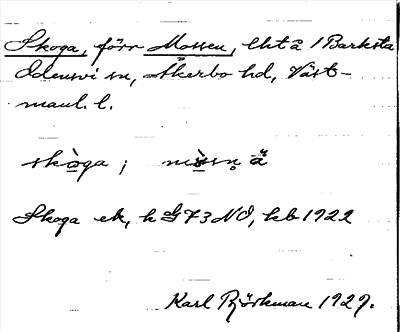 Skoga, förr Mossen, lht å 1 Barksta
Odensvi sn, Åkerbo hd, Väst-
manl. l.
skòga; mòsn̥ ä
Skoga ek, k G 73 NO, kb 1922
Karl Björkman 1929.